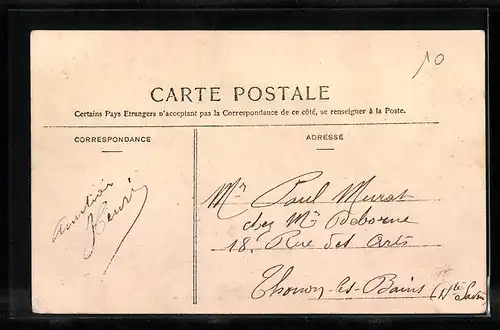 10
CARTE POSTALE
Certains Pays Etrangers n'acceptant pas la Correspondance de ce côté, se renseigner à la Poste.
CORRESPONDANCE
ADRESSE
Amitiés
Henri
Mr Paul Murat
chez Mr Deborne
18, Rue des Arts
Thonon-les-Bains
(Hte Savoie